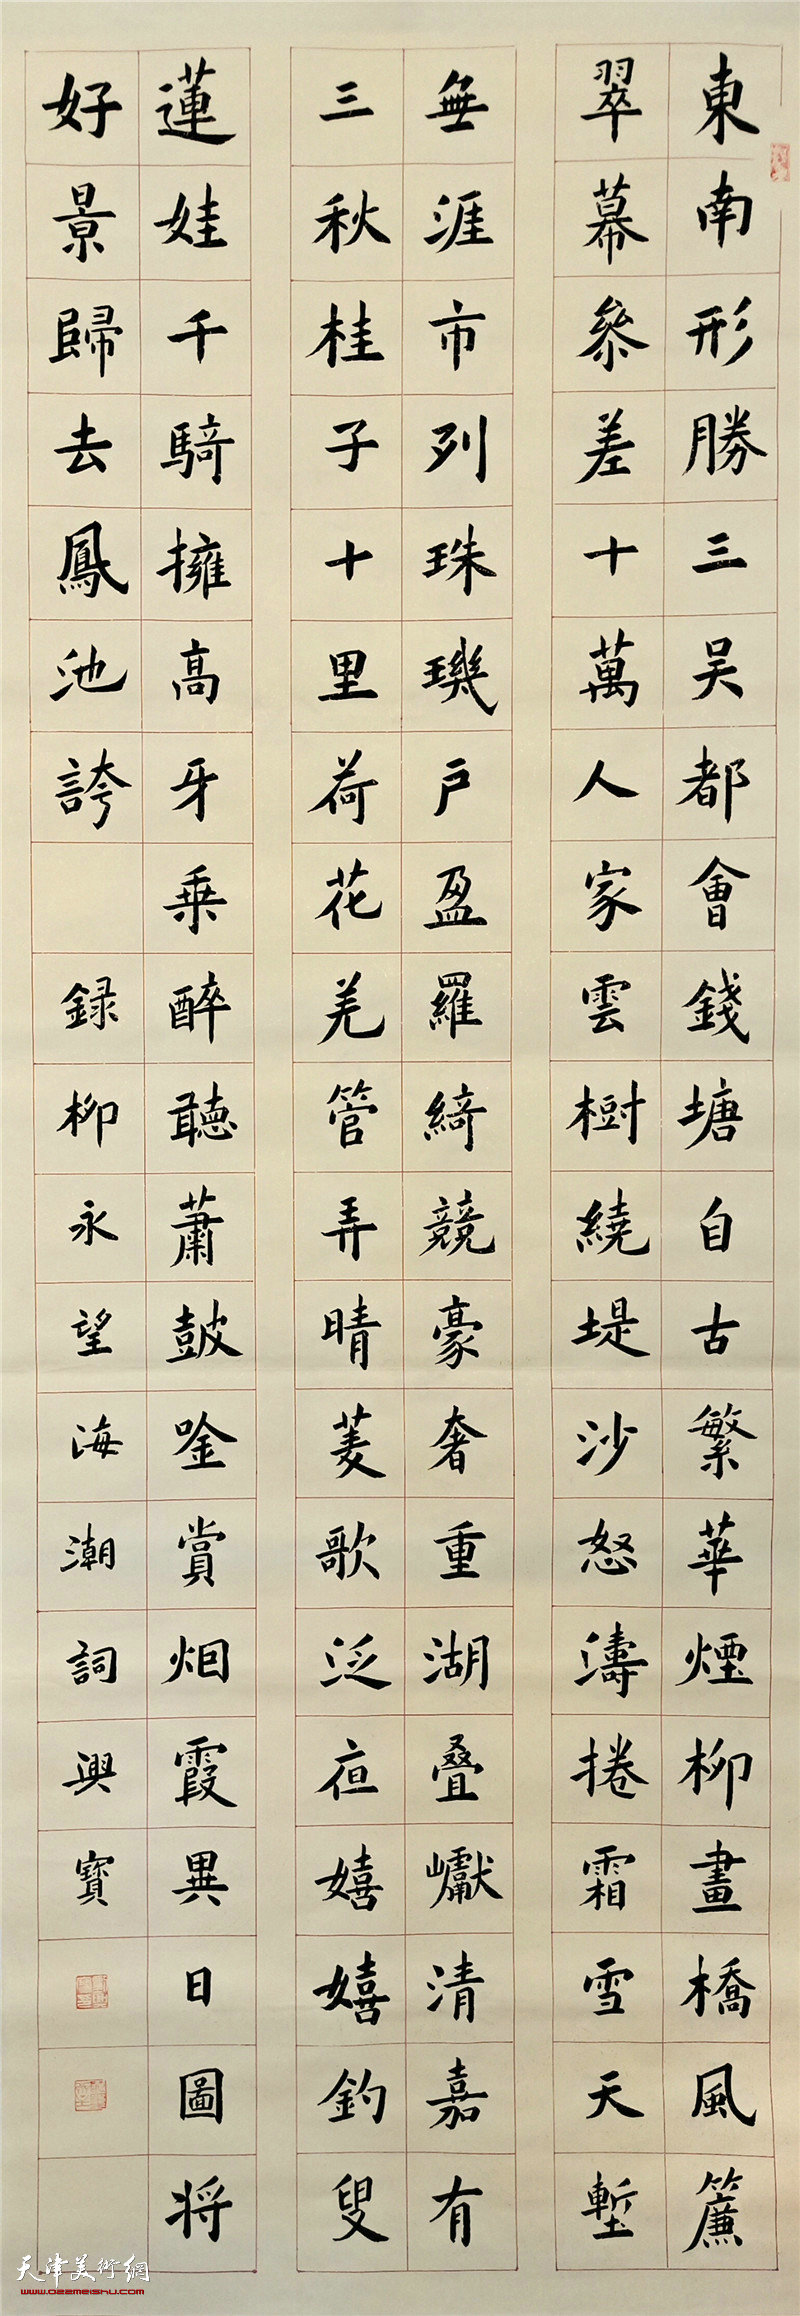 東南形勝三吴都會錢塘自古繁華煙柳畫橋風簾
翠幕叅差十萬人家雲樹繞堤沙怒濤捲霜雪天塹
無涯市列珠璣户盈羅綺競豪奢重湖叠巘清嘉有
三秋桂子十里荷花羌管弄晴菱歌泛夜嬉嬉釣叟
蓮娃千騎擁高牙乗醉聽蕭鼓唫賞烟霞異日圖将
好景歸去鳳池誇
録柳永望海潮詞興寳
天津美術網
www.022meishu.com